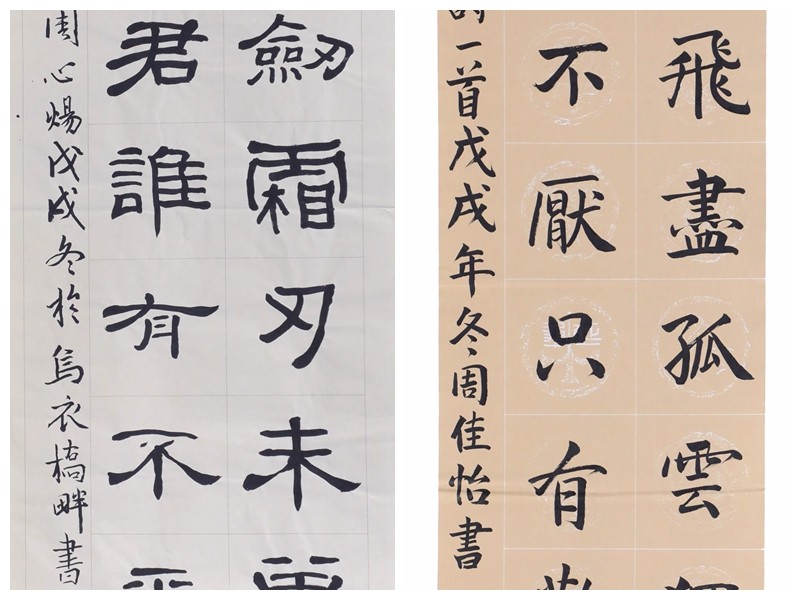 劔霜刃未
君誰有不
周心煬戊戌冬於烏衣橋畔書
飛盡孤雲
不厭只有
一首戊戌年冬周佳怡書